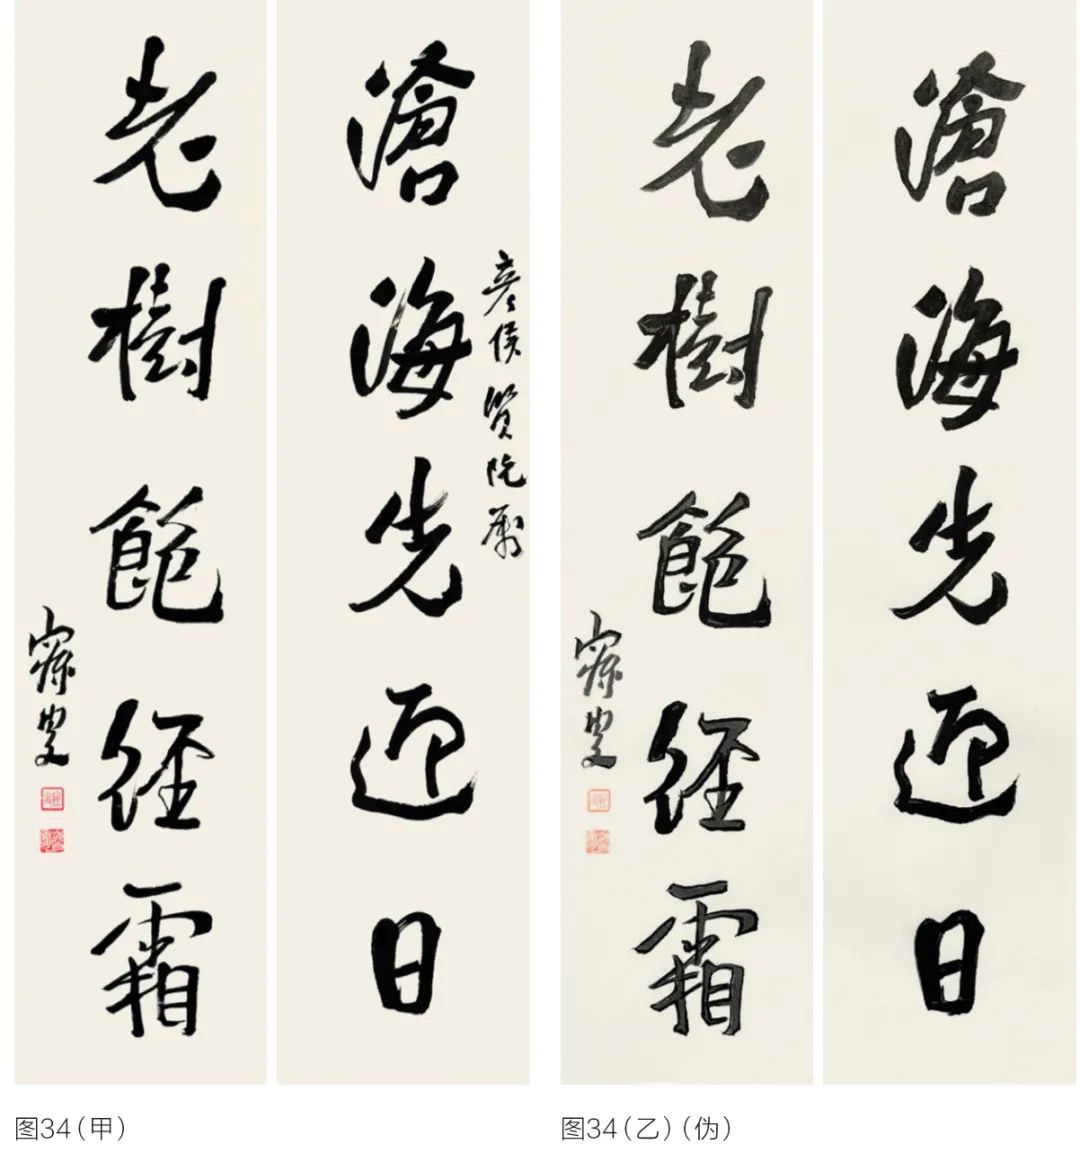 彦侯賢阮属
滄海先迎日
老樹飽經霜
寐叟
滄海先迎日
老樹飽經霜
寐叟
图34（甲）
图34（乙）（伪）